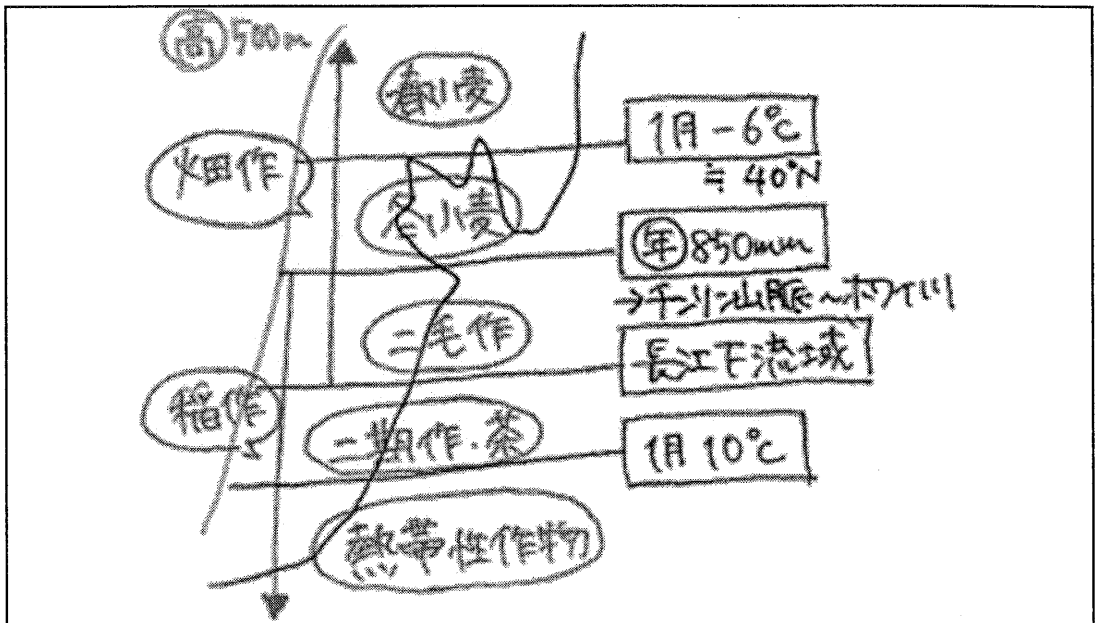 高500m
春小麦
1月-6℃
≒40°N
畑作
冬小麦
年850mm
→チンリン山脈～ホワイ川
二毛作
長江下流域
稲作
二期作・茶
1月10℃
熱帯性作物